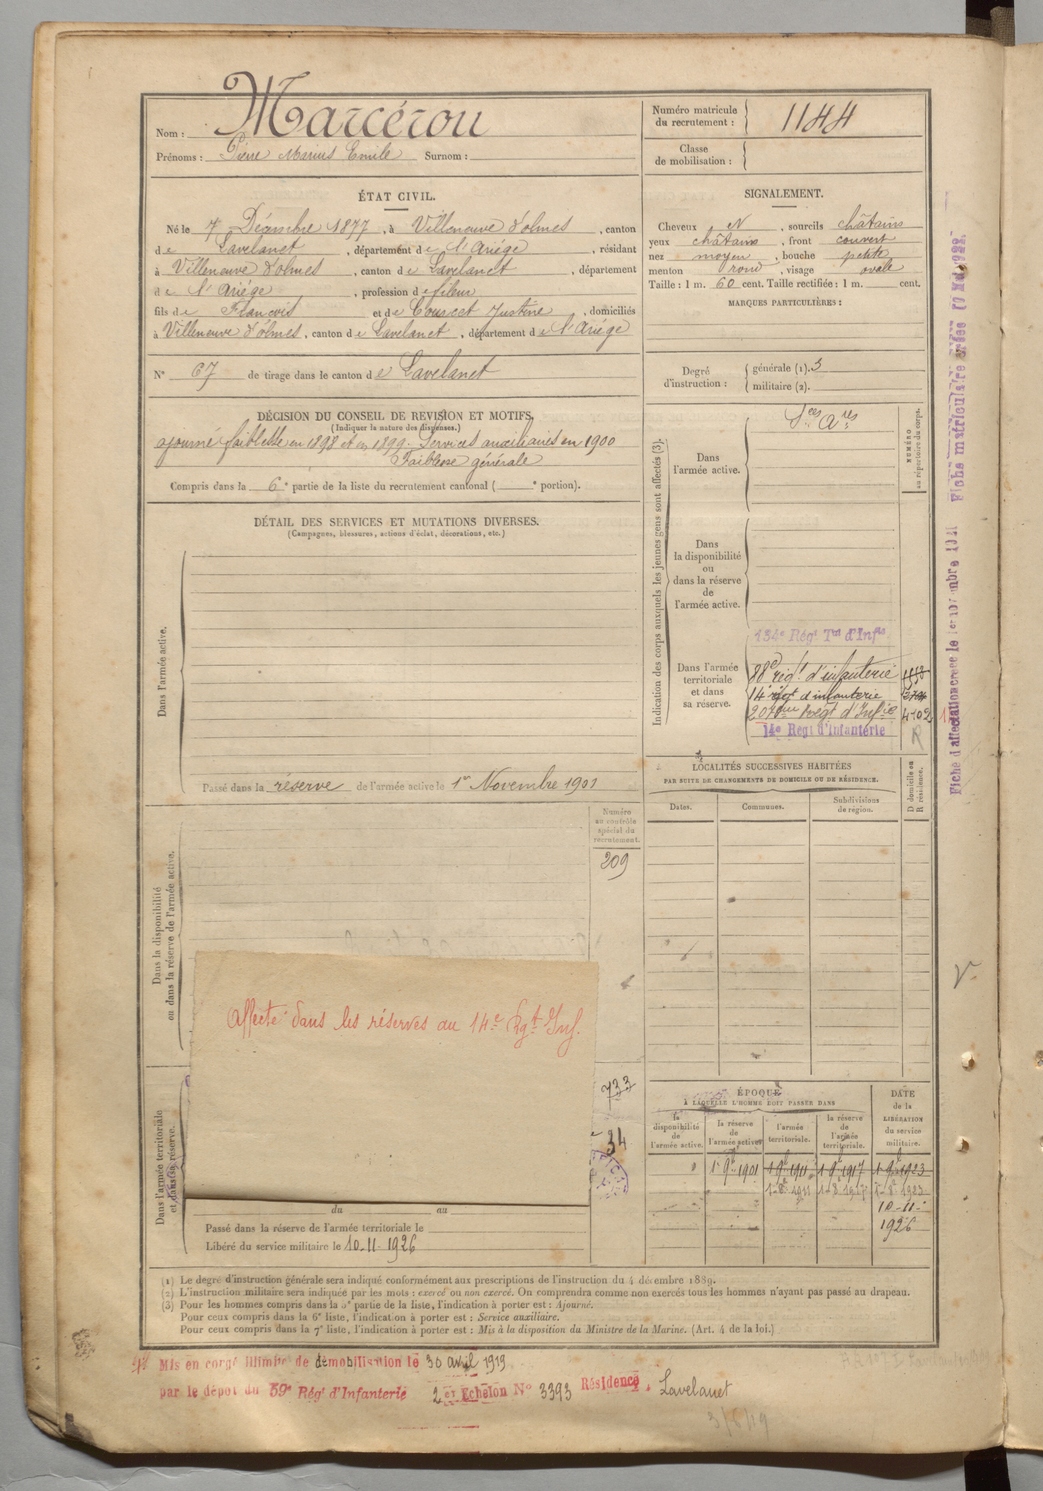 Nom : Marcérou
Prénoms : Pierre Marius Emile Surnom :
Numéro matricule du recrutement : 1144
Classe de mobilisation :
ÉTAT CIVIL.
Né le 7 Décembre 1877, à Villeneuve d'olmes, canton
de Lavelanet, département de l'Ariège, résidant
à Villeneuve d'olmes, canton de Lavelanet, département
de l'Ariège, profession de fileur
fils de François et de Courcet Justine, domiciliés
à Villeneuve d'olmes, canton de Lavelanet, département de l'Ariège
N° 67 de tirage dans le canton de Lavelanet
SIGNALEMENT.
Cheveux N, sourcils châtains
yeux châtains, front couvert
nez moyen, bouche petite
menton rond, visage ovale
Taille : 1 m. 60 cent. Taille rectifiée : 1 m. cent.
MARQUES PARTICULIÈRES :
Degré d'instruction : générale (1). 3
militaire (2).
DÉCISION DU CONSEIL DE REVISION ET MOTIFS.
(Indiquer la nature des dispenses.)
ajourné faiblesse en 1898 et en 1899. Services auxiliaires en 1900
Faiblesse générale
Compris dans la 6e partie de la liste du recrutement cantonal ( e portion).
DÉTAIL DES SERVICES ET MUTATIONS DIVERSES.
(Campagnes, blessures, actions d'éclat, décorations, etc.)
Dans l'armée active.
Passé dans la réserve de l'armée active le 1er Novembre 1901
Indication des corps auxquels les jeunes gens sont affectés (3).
Dans l'armée active.
Sces Ares
NUMÉRO au répertoire du corps.
Dans la disponibilité ou dans la réserve de l'armée active.
Dans l'armée territoriale et dans sa réserve.
134e Régt Tal d'Infie
88e régt d'infanterie
14 régt d'infanterie
207ème Régt d'Infie 4102
14e Régt d'Infanterie R
LOCALITÉS SUCCESSIVES HABITÉES
PAR SUITE DE CHANGEMENTS DE DOMICILE OU DE RÉSIDENCE.
Dates. Communes. Subdivisions de région.
D domicile ou R résidence.
Dans la disponibilité ou dans la réserve de l'armée active.
Numéro au contrôle spécial du recrutement.
209
Affecté dans les réserves au 14e Rgt Inf.
733
34
Dans l'armée territoriale et dans sa réserve.
du au
Passé dans la réserve de l'armée territoriale le
Libéré du service militaire le 10-11-1926
ÉPOQUE
A LAQUELLE L'HOMME DOIT PASSER DANS
la disponibilité de l'armée active.
la réserve de l'armée active.
l'armée territoriale.
la réserve de l'armée territoriale.
DATE de la LIBÉRATION du service militaire.
1 9bre 1901 1 9bre 1911 1 9bre 1917 1 9bre 1923
10-11-
1926
(1) Le degré d'instruction générale sera indiqué conformément aux prescriptions de l'instruction du 4 décembre 1889.
(2) L'instruction militaire sera indiquée par les mots : exercé ou non exercé. On comprendra comme non exercés tous les hommes n'ayant pas passé au drapeau.
(3) Pour les hommes compris dans la 5e partie de la liste, l'indication à porter est : Ajourné.
Pour ceux compris dans la 6e liste, l'indication à porter est : Service auxiliaire.
Pour ceux compris dans la 7e liste, l'indication à porter est : Mis à la disposition du Ministre de la Marine. (Art. 4 de la loi.)
Mis en congé illimité de démobilisation le 30 avril 1919
par le dépôt du 59e Régt d'Infanterie 2 er Echelon N° 3393 Résidence, Lavelanet
Fiche matriculaire créée